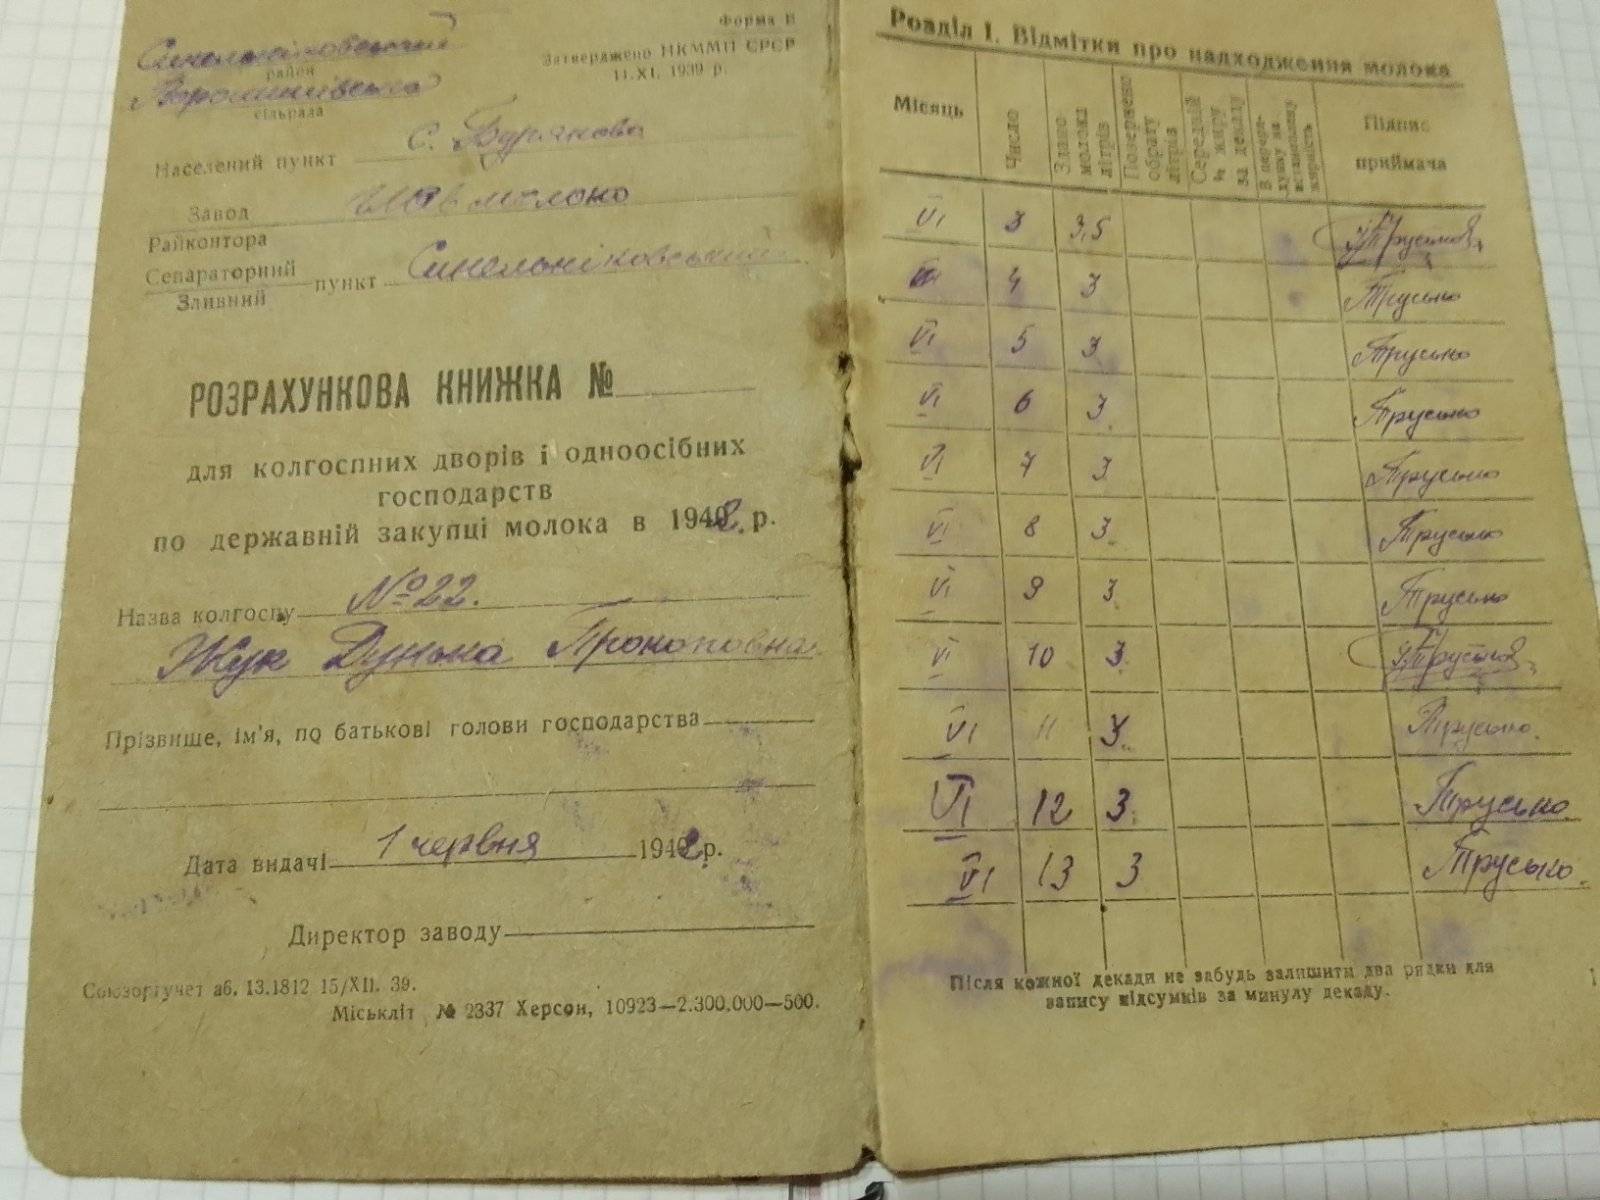 Форма В
Затверджено НКММП СРСР
11.XI. 1939 р.
Синельніковський
район
сільрада
Населений пункт с. Бурякова
Завод Главмолоко
Райконтора
Сепараторний
Зливний пункт Синельніковський
РОЗРАХУНКОВА КНИЖКА №
для колгоспних дворів і одноосібних
господарств
по державній закупці молока в 1942 р.
Назва колгоспу №22.
Жук Дунька Прокоповна
Прізвище, ім'я, по батькові голови господарства
Дата видачі 1 червня 1942 р.
Директор заводу
Союзоргучет аб. 13.1812 15/XII. 39.
Міськліт № 2337 Херсон, 10923—2.300.000—500.
Розділ I. Відмітки про надходження молока
Місяць Число Здано молока літрів Повержено обрату літрів Середній % жиру за декаду В перерахунку на встановлену жирність Підпис приймача
VI 3 3,5
4 3 Трусько
VI 5 3 Трусько
VI 6 3 Трусько
VI 7 3 Трусько
VI 8 3 Трусько
VI 9 3 Трусько
VI 10 3
VI 11 3 Трусько.
VI 12 3 Трусько.
VI 13 3 Трусько.
Після кожної декади не забудь залишити два рядки для
запису підсумків за минулу декаду.